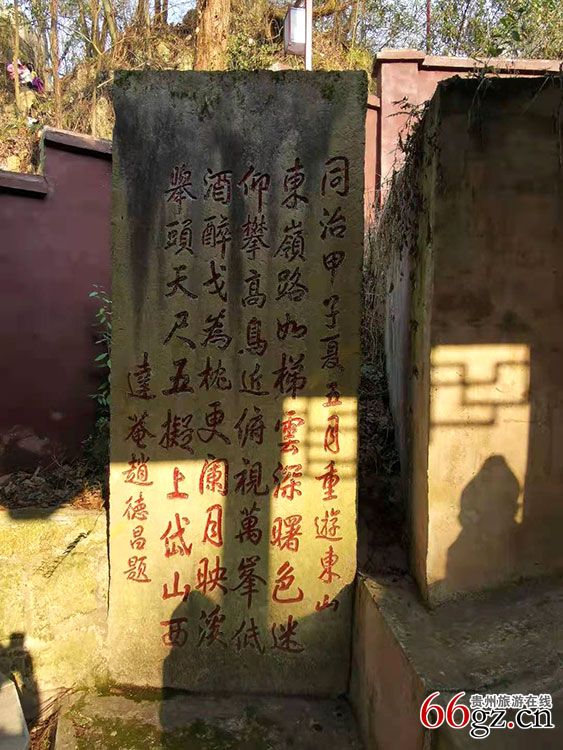 同治甲子夏五月重遊東山
東嶺路如梯雲深曙色迷
仰攀高鳥近俯視萬峯低
酒醉戈為枕更闌月映溪
舉頭天尺五擬上岱山西
達菴趙德昌題
66gz.cn
贵州旅游在线